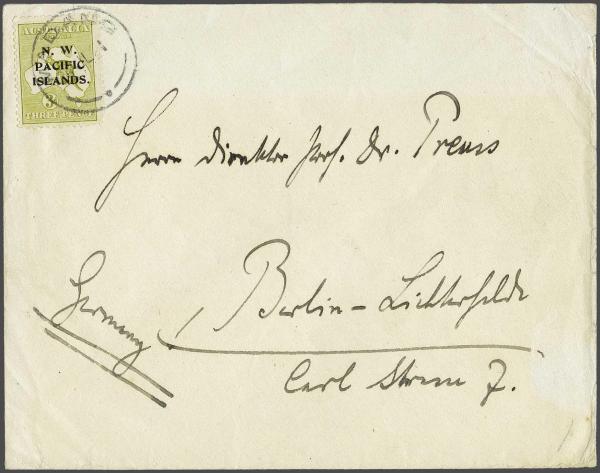 AUSTRALIA
N. W.
PACIFIC
ISLANDS.
3d
THREE PENCE
Herrn Direktor Prof. Dr. Preuss
Berlin – Lichterfelde
Germany
Carl Strasse 7.